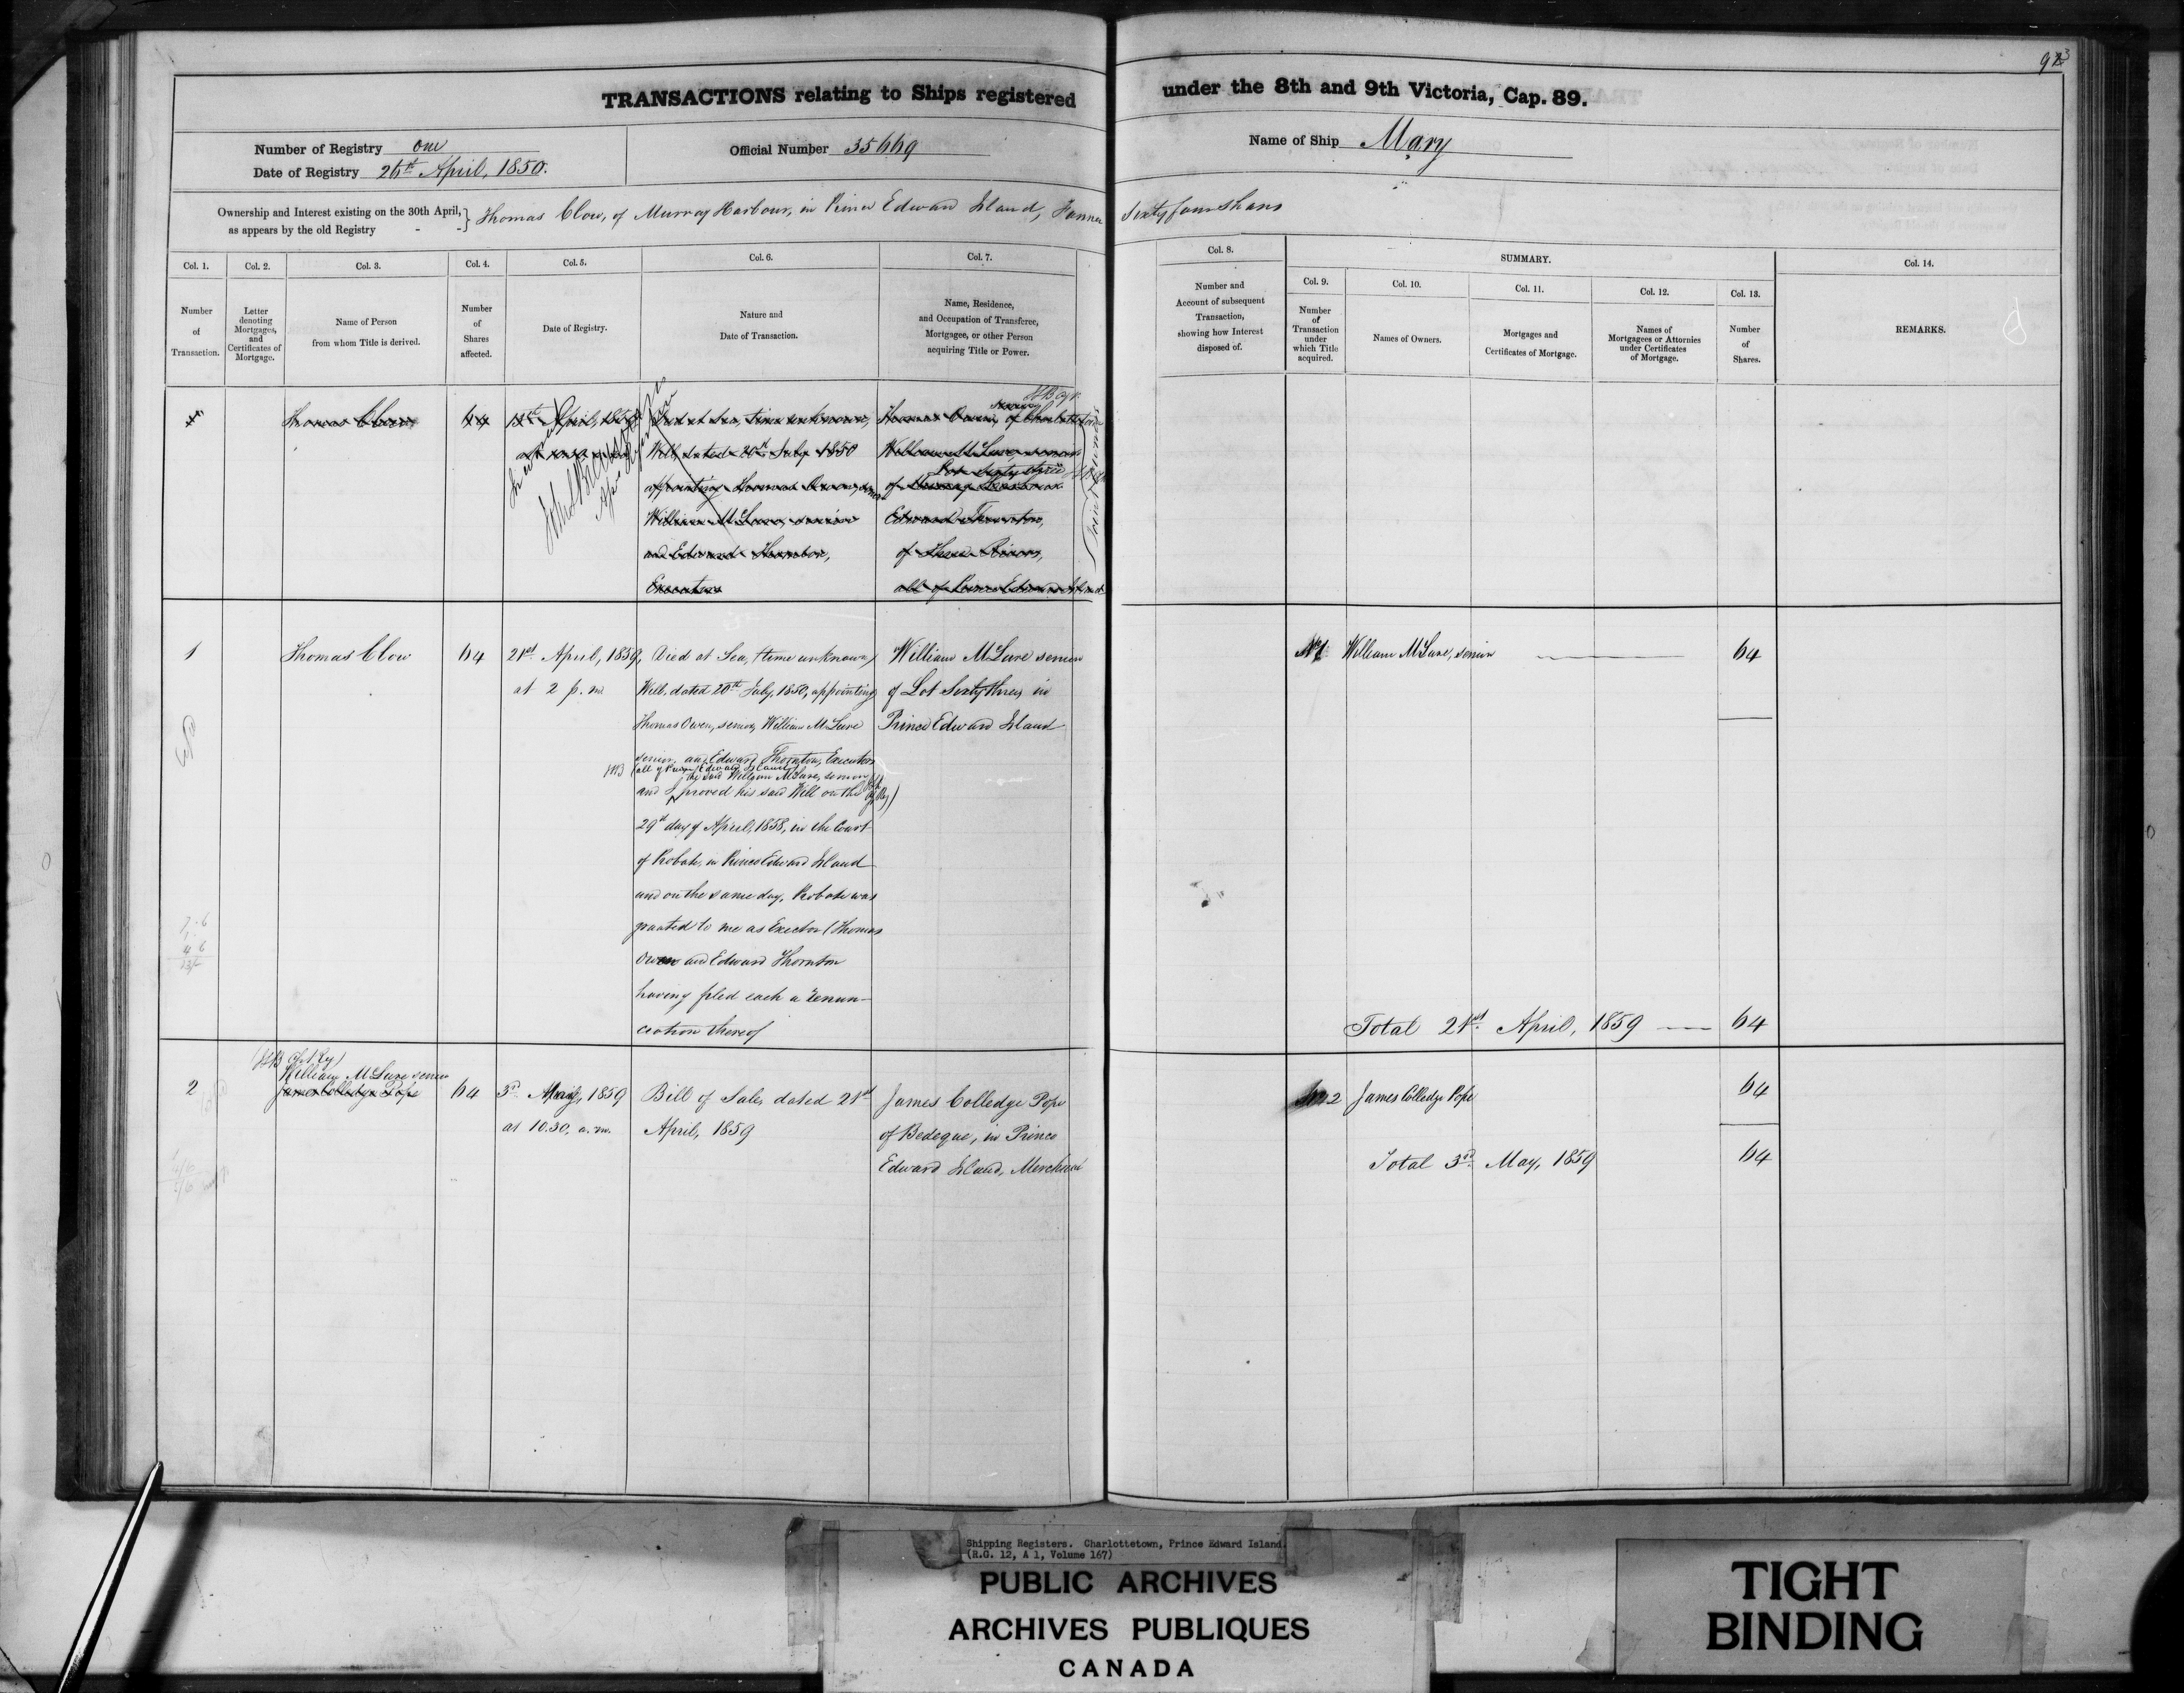 93
TRANSACTIONS relating to Ships registered under the 8th and 9th Victoria, Cap. 89.
Number of Registry one
Date of Registry 26th April, 1850.
Official Number 35669
Name of Ship Mary
Ownership and Interest existing on the 30th April, as appears by the old Registry - - } Thomas Clow, of Murray Harbour, in Prince Edward Island, Farmer Sixty four Shares
Col. 1.
Number
of
Transaction.
Col. 2.
Letter
denoting
Mortgages,
and
Certificates of
Mortgage.
Col. 3.
Name of Person
from whom Title is derived.
Col. 4.
Number
of
Shares
affected.
Col. 5.
Date of Registry.
Col. 6.
Nature and
Date of Transaction.
Col. 7.
Name, Residence,
and Occupation of Transferee,
Mortgagee, or other Person
acquiring Title or Power.
Col. 8.
Number and
Account of subsequent
Transaction,
showing how Interest
disposed of.
SUMMARY.
Col. 9.
Number
of
Transaction
under
which Title
acquired.
Col. 10.
Names of Owners.
Col. 11.
Mortgages and
Certificates of Mortgage.
Col. 12.
Names of
Mortgagees or Attornies
under Certificates
of Mortgage.
Col. 13.
Number
of
Shares.
Col. 14.
REMARKS.
Thomas Clow
64
Died at Sea, time unknown,
Will, dated 20th July 1850
appointing Thomas Owen, senior
William McLure, senior
and Edward Thornton,
Executors
Thomas Owen, senior of Charlottetown
William McLure, senior
Lot Sixty three
of Murray Harbour
Edward Thornton,
of Three Rivers,
all of Prince Edward Island
1
Thomas Clow
64
21st April, 1859,
at 2 p. m.
Died at Sea, (time unknown)
Will, dated 20th July, 1850, appointing
Thomas Owen, senior, William McLure
senior, and Edward Thornton, Executors
(all of Prince Edward Island)
the said William McLure, senior
and I proved his said Will on the
29th day of April, 1858, in the Court
of Probate, in Prince Edward Island
and on the same day, Probate was
granted to me as Exector (Thomas
Owen and Edward Thornton
having filed each a renun-
ciation thereof
William McLure senior
of Lot Sixty three, in
Prince Edward Island
No 1
William McLure, senior
64
Total 21st April, 1859 64
2
William McLure senior
James Colledge Pope
64
3rd May, 1859
at 10.30. a. m.
Bill of Sale, dated 21st
April, 1859
James Colledge Pope
of Bedeque, in Prince
Edward Island, Merchant
No 2
James Colledge Pope
64
Total 3rd May, 1859 64
Shipping Registers. Charlottetown, Prince Edward Island.
(R.G. 12, A 1, Volume 167)
PUBLIC ARCHIVES
ARCHIVES PUBLIQUES
CANADA
TIGHT
BINDING